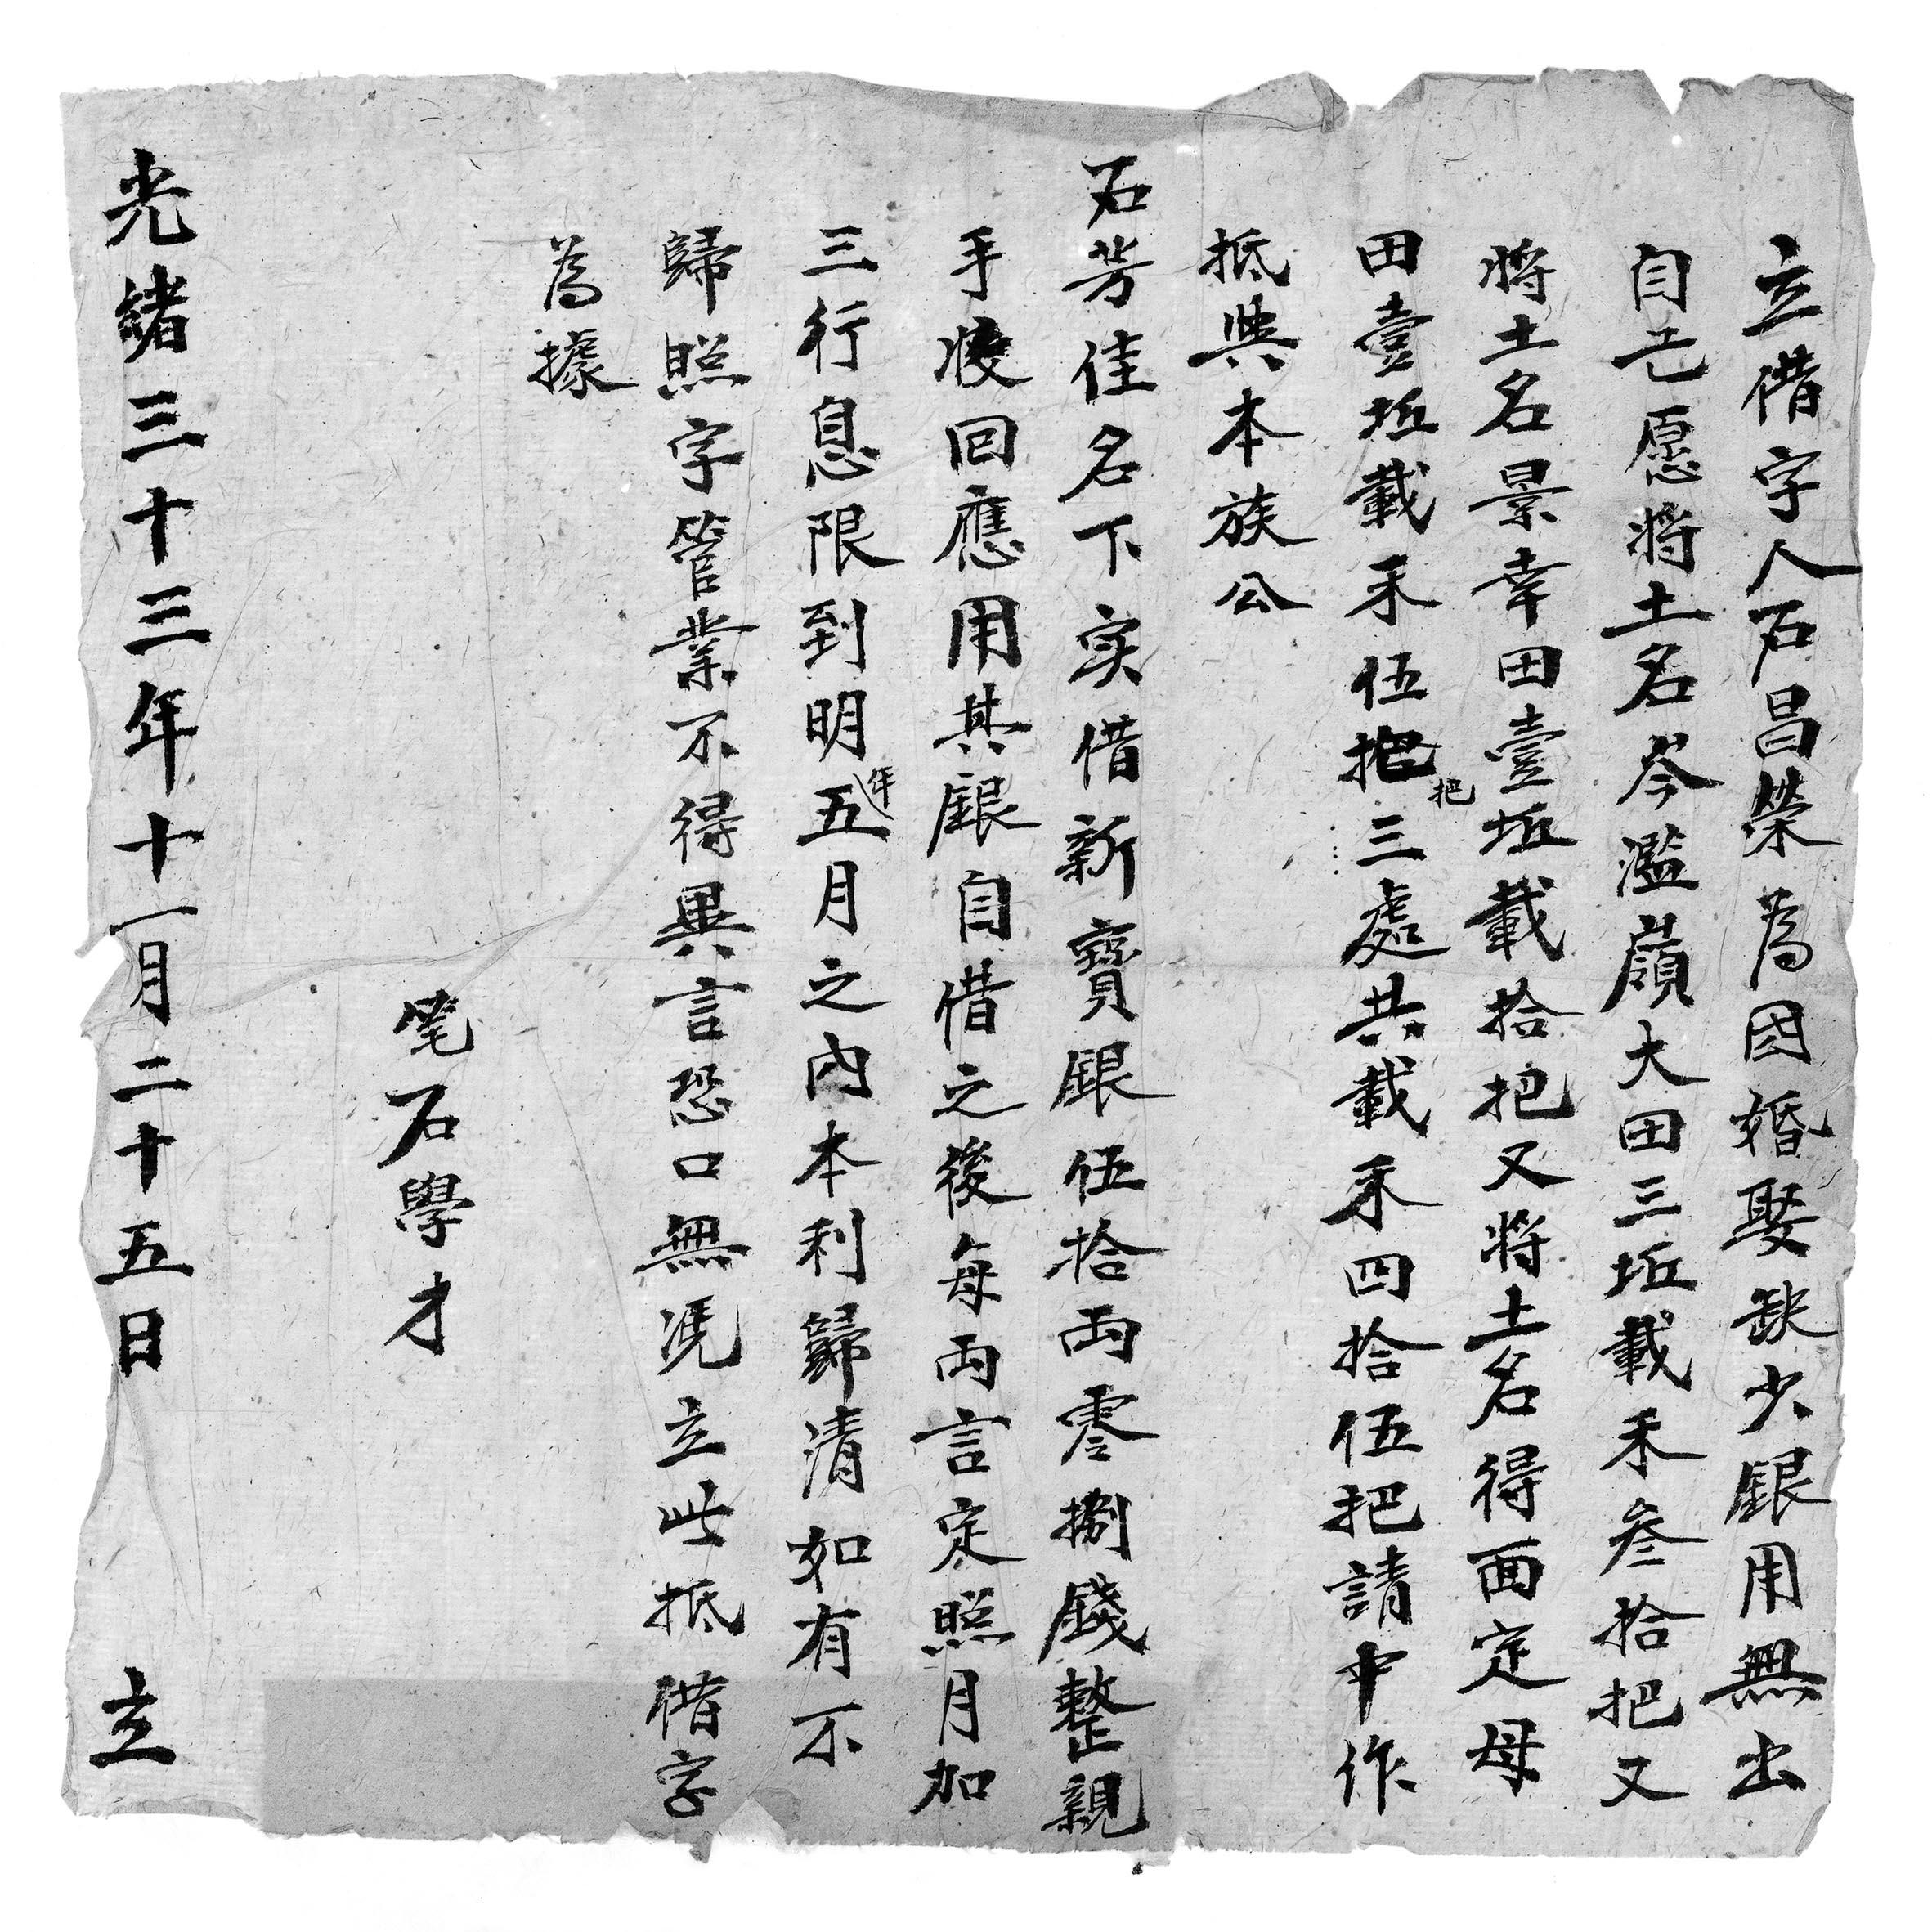 立借字人石昌榮為因婚娶缺少銀用無出
自己愿將土名岑濫嶺大田三坵載禾叁拾把又
將土名景幸田壹坵載拾把又將土名得面定母
田壹坵載禾伍把三處共載禾四拾伍把請中作
把
抵典本族公
石芳佳名下实借新寶銀伍拾両零捌錢整親
手收回應用其銀自借之後每両言定照月加
三行息限到明年五月之內本利歸清如有不
歸照字管業不得異言恐口無凴立此抵借字
為據
筆石學才
光緒三十三年十一月二十五日 立